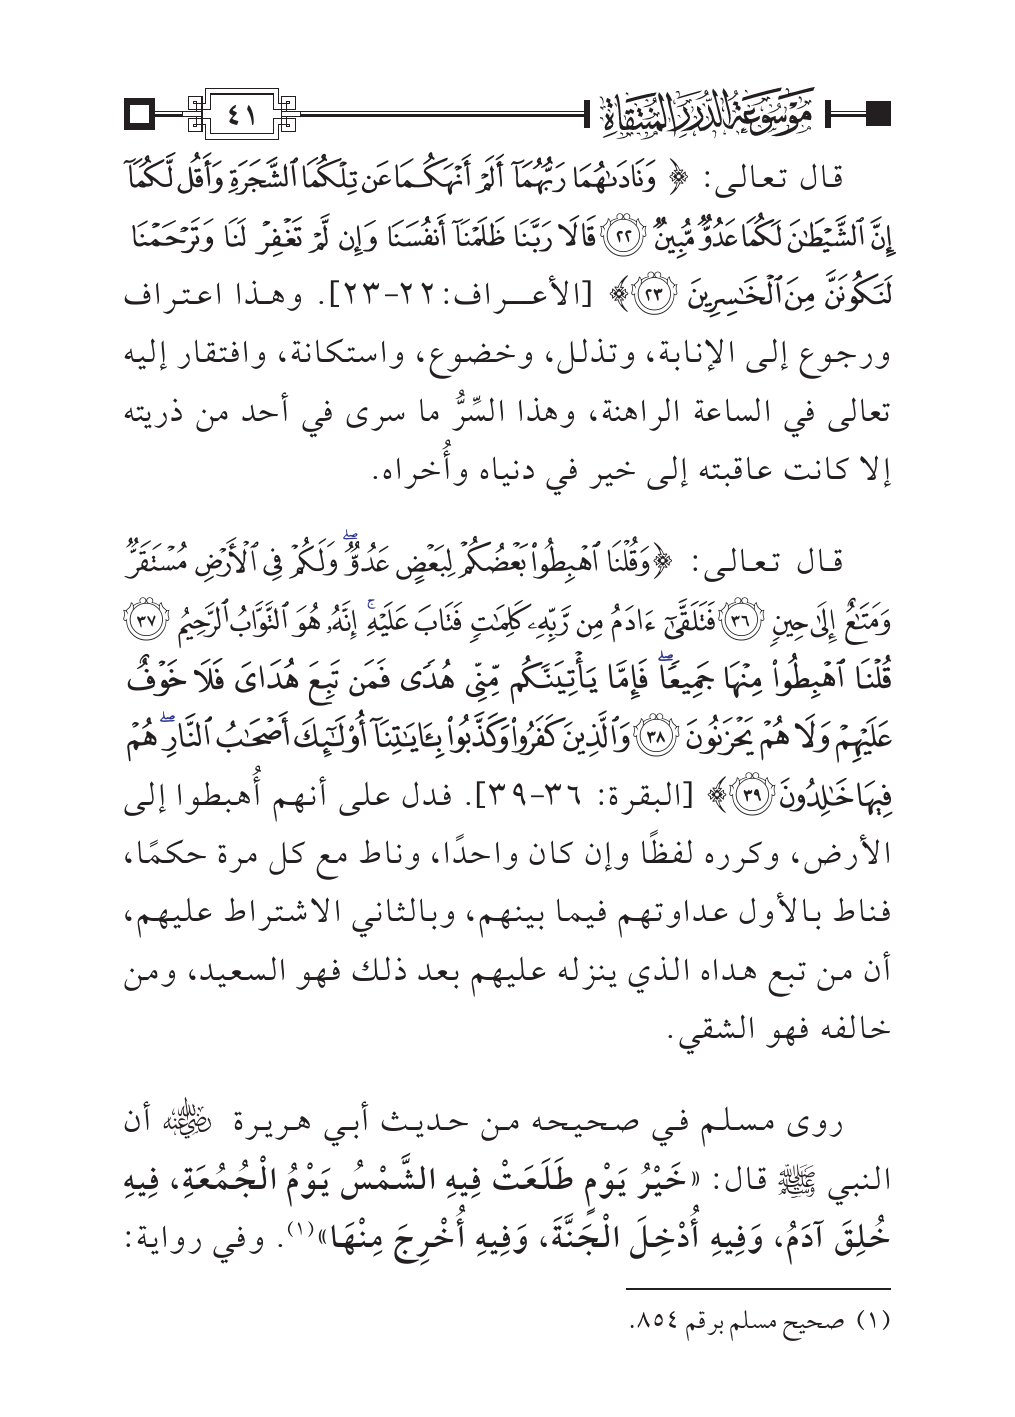 موسوعة الدرر المنتقاة
٤١
قال تعالى: ﴿ وَنَادَىٰهُمَا رَبُّهُمَآ أَلَمْ أَنْهَكُمَا عَن تِلْكُمَا ٱلشَّجَرَةِ وَأَقُل لَّكُمَآ
إِنَّ ٱلشَّيْطَٰنَ لَكُمَا عَدُوٌّ مُّبِينٌ ٢٢ قَالَا رَبَّنَا ظَلَمْنَآ أَنفُسَنَا وَإِن لَّمْ تَغْفِرْ لَنَا وَتَرْحَمْنَا
لَنَكُونَنَّ مِنَ ٱلْخَٰسِرِينَ ٢٣ ﴾ [الأعراف: ٢٢-٢٣]. وهذا اعتراف
ورجوع إلى الإنابة، وتذلل، وخضوع، واستكانة، وافتقار إليه
تعالى في الساعة الراهنة، وهذا السِّرُّ ما سرى في أحد من ذريته
إلا كانت عاقبته إلى خير في دنياه وأُخراه.
قال تعالى: ﴿وَقُلْنَا ٱهْبِطُوا۟ بَعْضُكُمْ لِبَعْضٍ عَدُوٌّ ۖ وَلَكُمْ فِى ٱلْأَرْضِ مُسْتَقَرٌّ
وَمَتَٰعٌ إِلَىٰ حِينٍ ٣٦ فَتَلَقَّىٰٓ ءَادَمُ مِن رَّبِّهِۦ كَلِمَٰتٍ فَتَابَ عَلَيْهِ ۚ إِنَّهُۥ هُوَ ٱلتَّوَّابُ ٱلرَّحِيمُ ٣٧
قُلْنَا ٱهْبِطُوا۟ مِنْهَا جَمِيعًا ۖ فَإِمَّا يَأْتِيَنَّكُم مِّنِّى هُدًى فَمَن تَبِعَ هُدَاىَ فَلَا خَوْفٌ
عَلَيْهِمْ وَلَا هُمْ يَحْزَنُونَ ٣٨ وَٱلَّذِينَ كَفَرُوا۟ وَكَذَّبُوا۟ بِـَٔايَٰتِنَآ أُو۟لَٰٓئِكَ أَصْحَٰبُ ٱلنَّارِ ۖ هُمْ
فِيهَا خَٰلِدُونَ ٣٩ ﴾ [البقرة: ٣٦-٣٩]. فدل على أنهم أُهبطوا إلى
الأرض، وكرره لفظًا وإن كان واحدًا، وناط مع كل مرة حكمًا،
فناط بالأول عداوتهم فيما بينهم، وبالثاني الاشتراط عليهم،
أن من تبع هداه الذي ينزله عليهم بعد ذلك فهو السعيد، ومن
خالفه فهو الشقي.
روى مسلم في صحيحه من حديث أبي هريرة رضي الله عنه أن
النبي ﷺ قال: «خَيْرُ يَوْمٍ طَلَعَتْ فِيهِ الشَّمْسُ يَوْمُ الْجُمُعَةِ، فِيهِ
خُلِقَ آدَمُ، وَفِيهِ أُدْخِلَ الْجَنَّةَ، وَفِيهِ أُخْرِجَ مِنْهَا»(١). وفي رواية:
(١) صحيح مسلم برقم ٨٥٤.